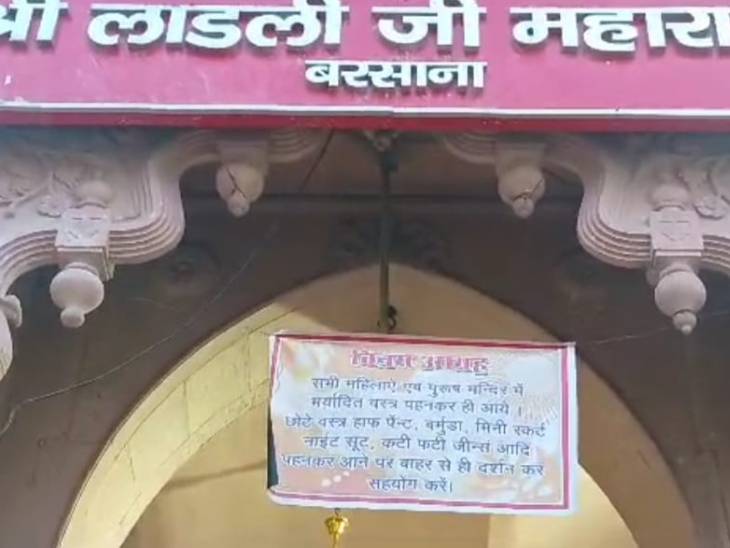 श्री लाडली जी महारा
बरसाना
विनम्र आग्रह
सभी महिलाऐं एवं पुरूष मन्दिर में
मर्यादित वस्त्र पहनकर ही आयें ।
छोटे वस्त्र हाफ पैन्ट, बर्मुडा, मिनी स्कर्ट
नाईट सूट, कटी फटी जीन्स आदि
पहनकर आने पर बाहर से ही दर्शन कर
सहयोग करें।